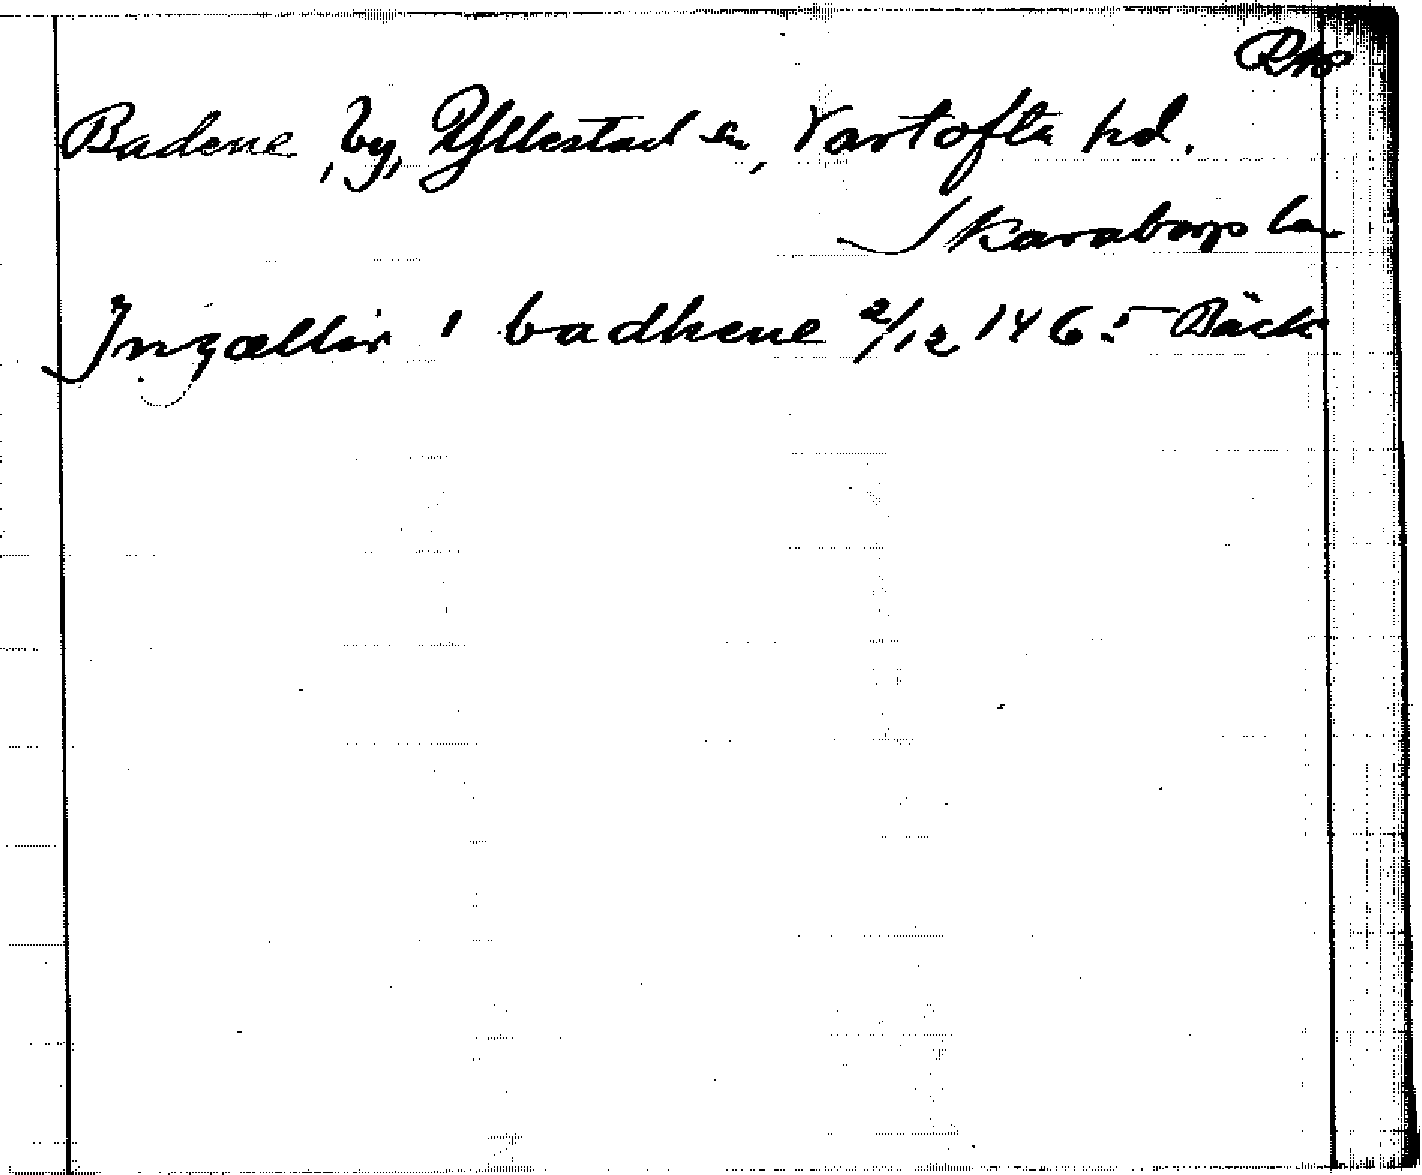 Badene, by, Yllestad sn, Vartofta hd.
Skaraborgs län
Ingællir i badhene 2/12 1465 Bäck